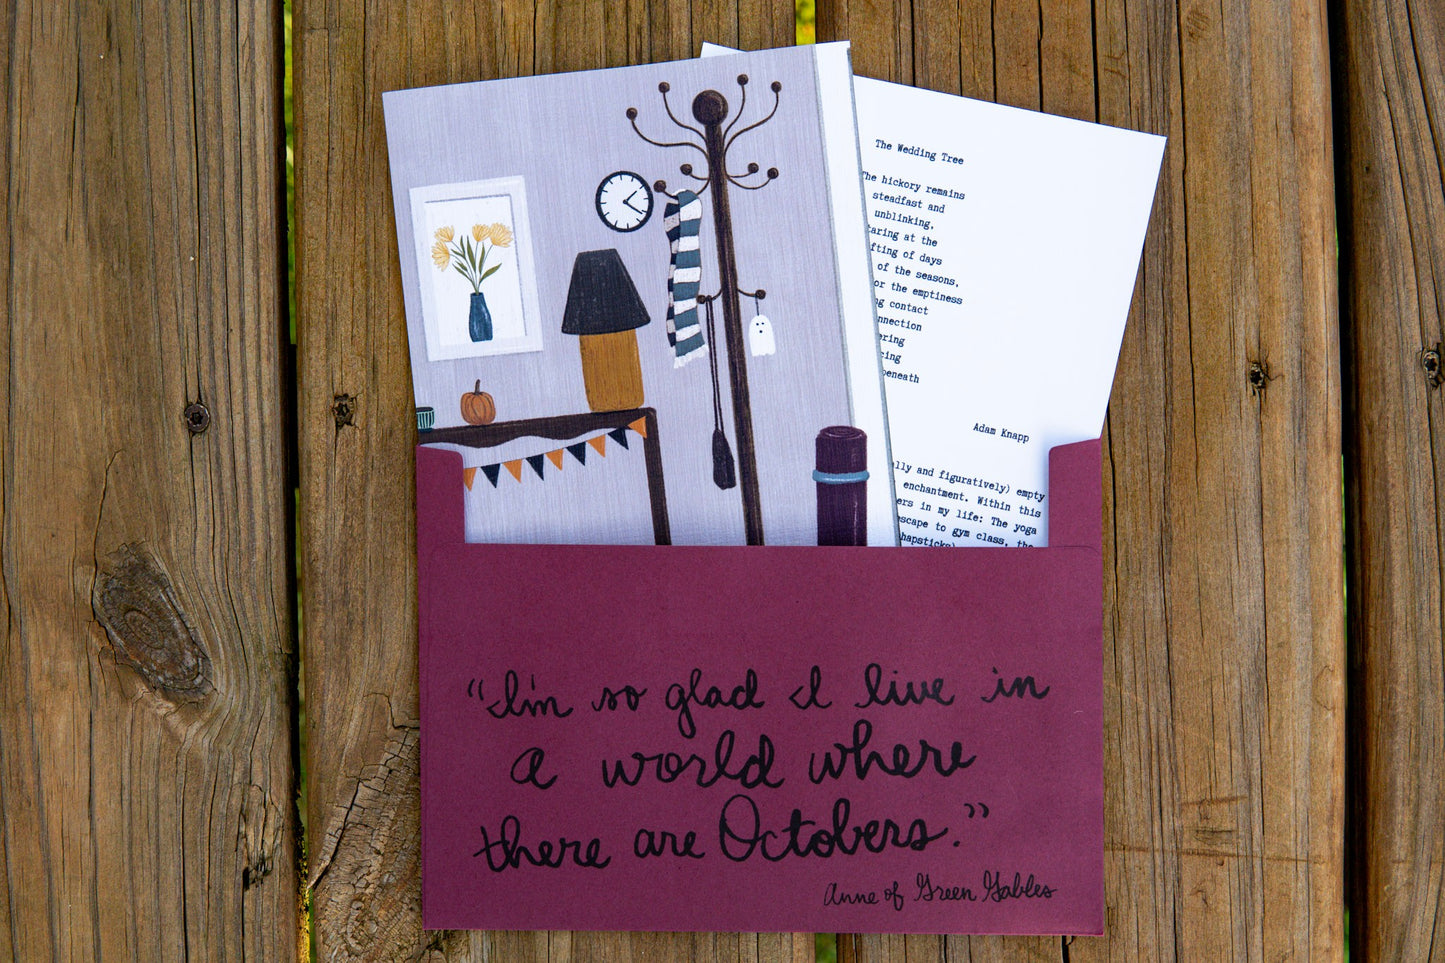 The Wedding Tree
The hickory remains
steadfast and
unblinking,
at the
of days
of the seasons,
or the emptiness
contact
beneath
Adam Knapp
and figuratively) empty
enchantment. Within this
in my life: The yoga
to gym class, the
“I'm so glad I live in
a world where
there are Octobers.”
Anne of Green Gables